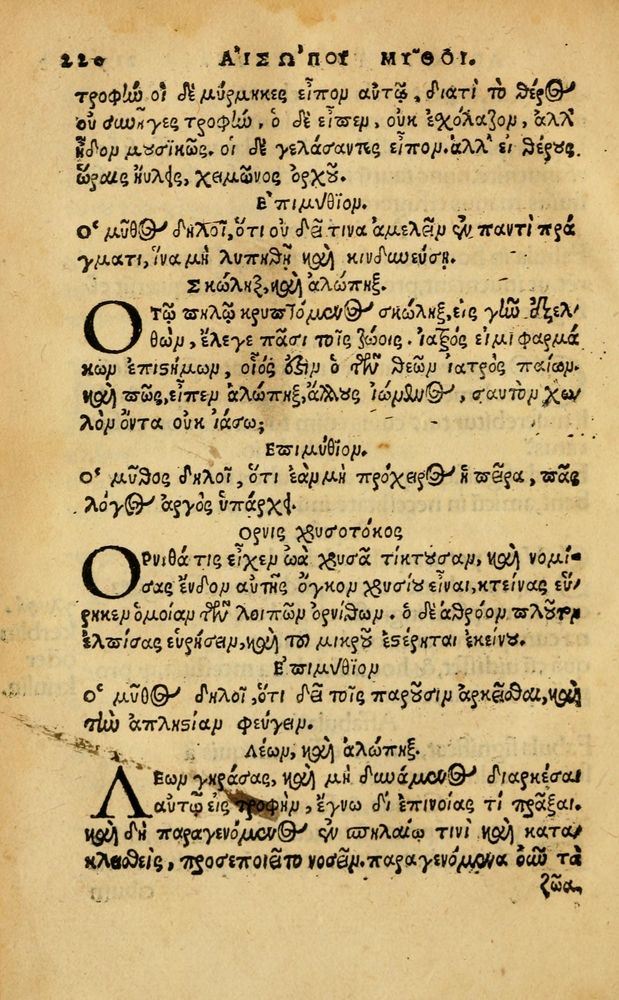 220 ΑἸΣΩ´ΠΟΥ ΜΥ͂ΘΟΙ.
τροφὴν οἱ δὲ μύρμηκες εἶπον αὐτῷ, διατὶ τὸ θέρος
οὐ συνῆγες τροφὴν, ὁ δὲ εἶπεν, οὐκ ἐχόλαζον, ἀλλ'
ᾖδον μουσικῶς. οἱ δὲ γελάσαντες εἶπον. ἀλλ' εἰ θέρους
ὥραις ηὔλεις, χειμῶνος ὀρχοῦ.
Ἐπιμύθιον.
Ο῾ μῦθος δηλοῖ, ὅτι οὐ δεῖ τινα ἀμελεῖν ἐν παντὶ πρά
γματι, ἵνα μὴ λυπηθῇ καὶ κινδυνεύσῃ.
Σκώληξ, καὶ ἀλώπηξ.
Ο τῷ πηλῷ κρυπτόμενος σκώληξ, εἰς γῆν ἐξελ
θὼν, ἔλεγε πᾶσι τοῖς ζώοις. ἰατρός εἰμι φαρμά
κων ἐπιστήμων, οἷός ἐστιν ὁ τῶν θεῶν ἰατρὸς παίων.
καὶ πῶς, εἶπεν ἀλώπηξ, ἄλλους ἰώμενος, σαυτὸν χω
λὸν ὄντα οὐκ ἰάσω;
Ἐπιμύθιον.
Ο῾ μῦθος δηλοῖ, ὅτι ἐὰν μὴ πρόχειρος ἡ πεῖρα, πᾶς
λόγος ἀργὸς ὑπάρχει.
Ορνις χρυσοτόκος
ΟΡνιθά τις εἶχεν ὠὰ χρυσᾶ τίκτουσαν, καὶ νομί-
σας ἔνδον αὐτῆς ὄγκον χρυσίου εἶναι, κτείνας εὕ
ρηκεν ὁμοίαν τῶν λοιπῶν ὀρνίθων. ὁ δὲ ἀθρόον πλοῦτον
ἐλπίσας εὑρήσειν, καὶ τοῦ μικροῦ ἐστέρηται ἐκείνου.
Ἐπιμύθιον
Ο῾ μῦθος δηλοῖ, ὅτι δεῖ τοῖς παροῦσιν ἀρκεῖσθαι, καὶ
τὴν ἀπληστίαν φεύγειν.
Λέων, καὶ ἀλώπηξ.
ΛΕων γηράσας, καὶ μὴ δυνάμενος διαρκέσαι
αὑτῷ εἰς τροφὴν, ἔγνω δι' ἐπινοίας τὶ πρᾶξαι.
καὶ δὴ παραγενόμενος ἐν σπηλαίῳ τινὶ καὶ κατα
κλειθεὶς, προσεποιεῖτο νοσεῖν. παραγενόμενα οὖν τὰ
ζῶα,